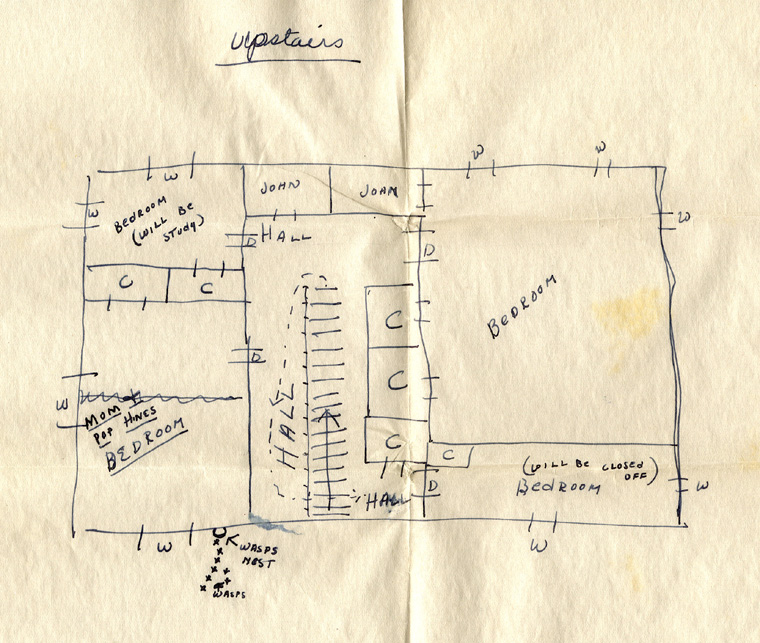 Upstairs
W
W
W
W
BEDROOM
(WILL BE
STUDY)
JOHN
JOHAN
W
D
HALL
D
C
C
BEDROOM
C
D
C
W
MOM +
POP HINES
BEDROOM
HALL
C
C
(WILL BE CLOSED
OFF)
BEDROOM
D
HALL
W
W
W
WASPS
NEST
WASPS